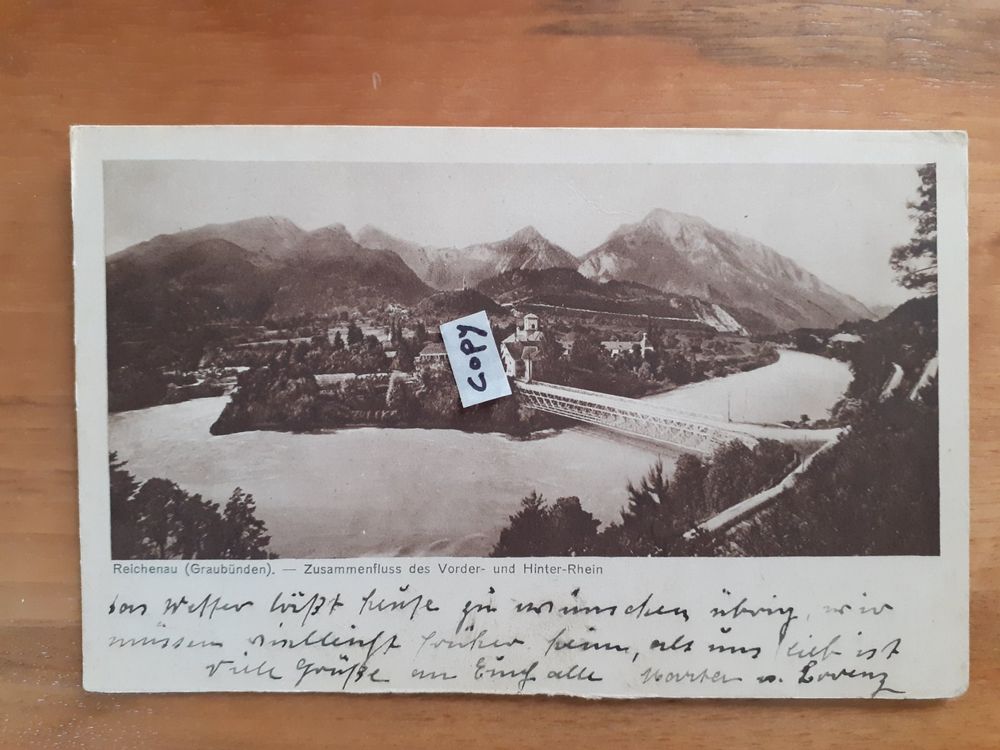 COPY
Reichenau (Graubünden). — Zusammenfluss des Vorder- und Hinter-Rhein
das Wetter läßt heute zu wünschen übrig, wir
müssen vielleicht früher heim, als uns lieb ist
Viele Grüße an Euch alle Marta u. Lorenz